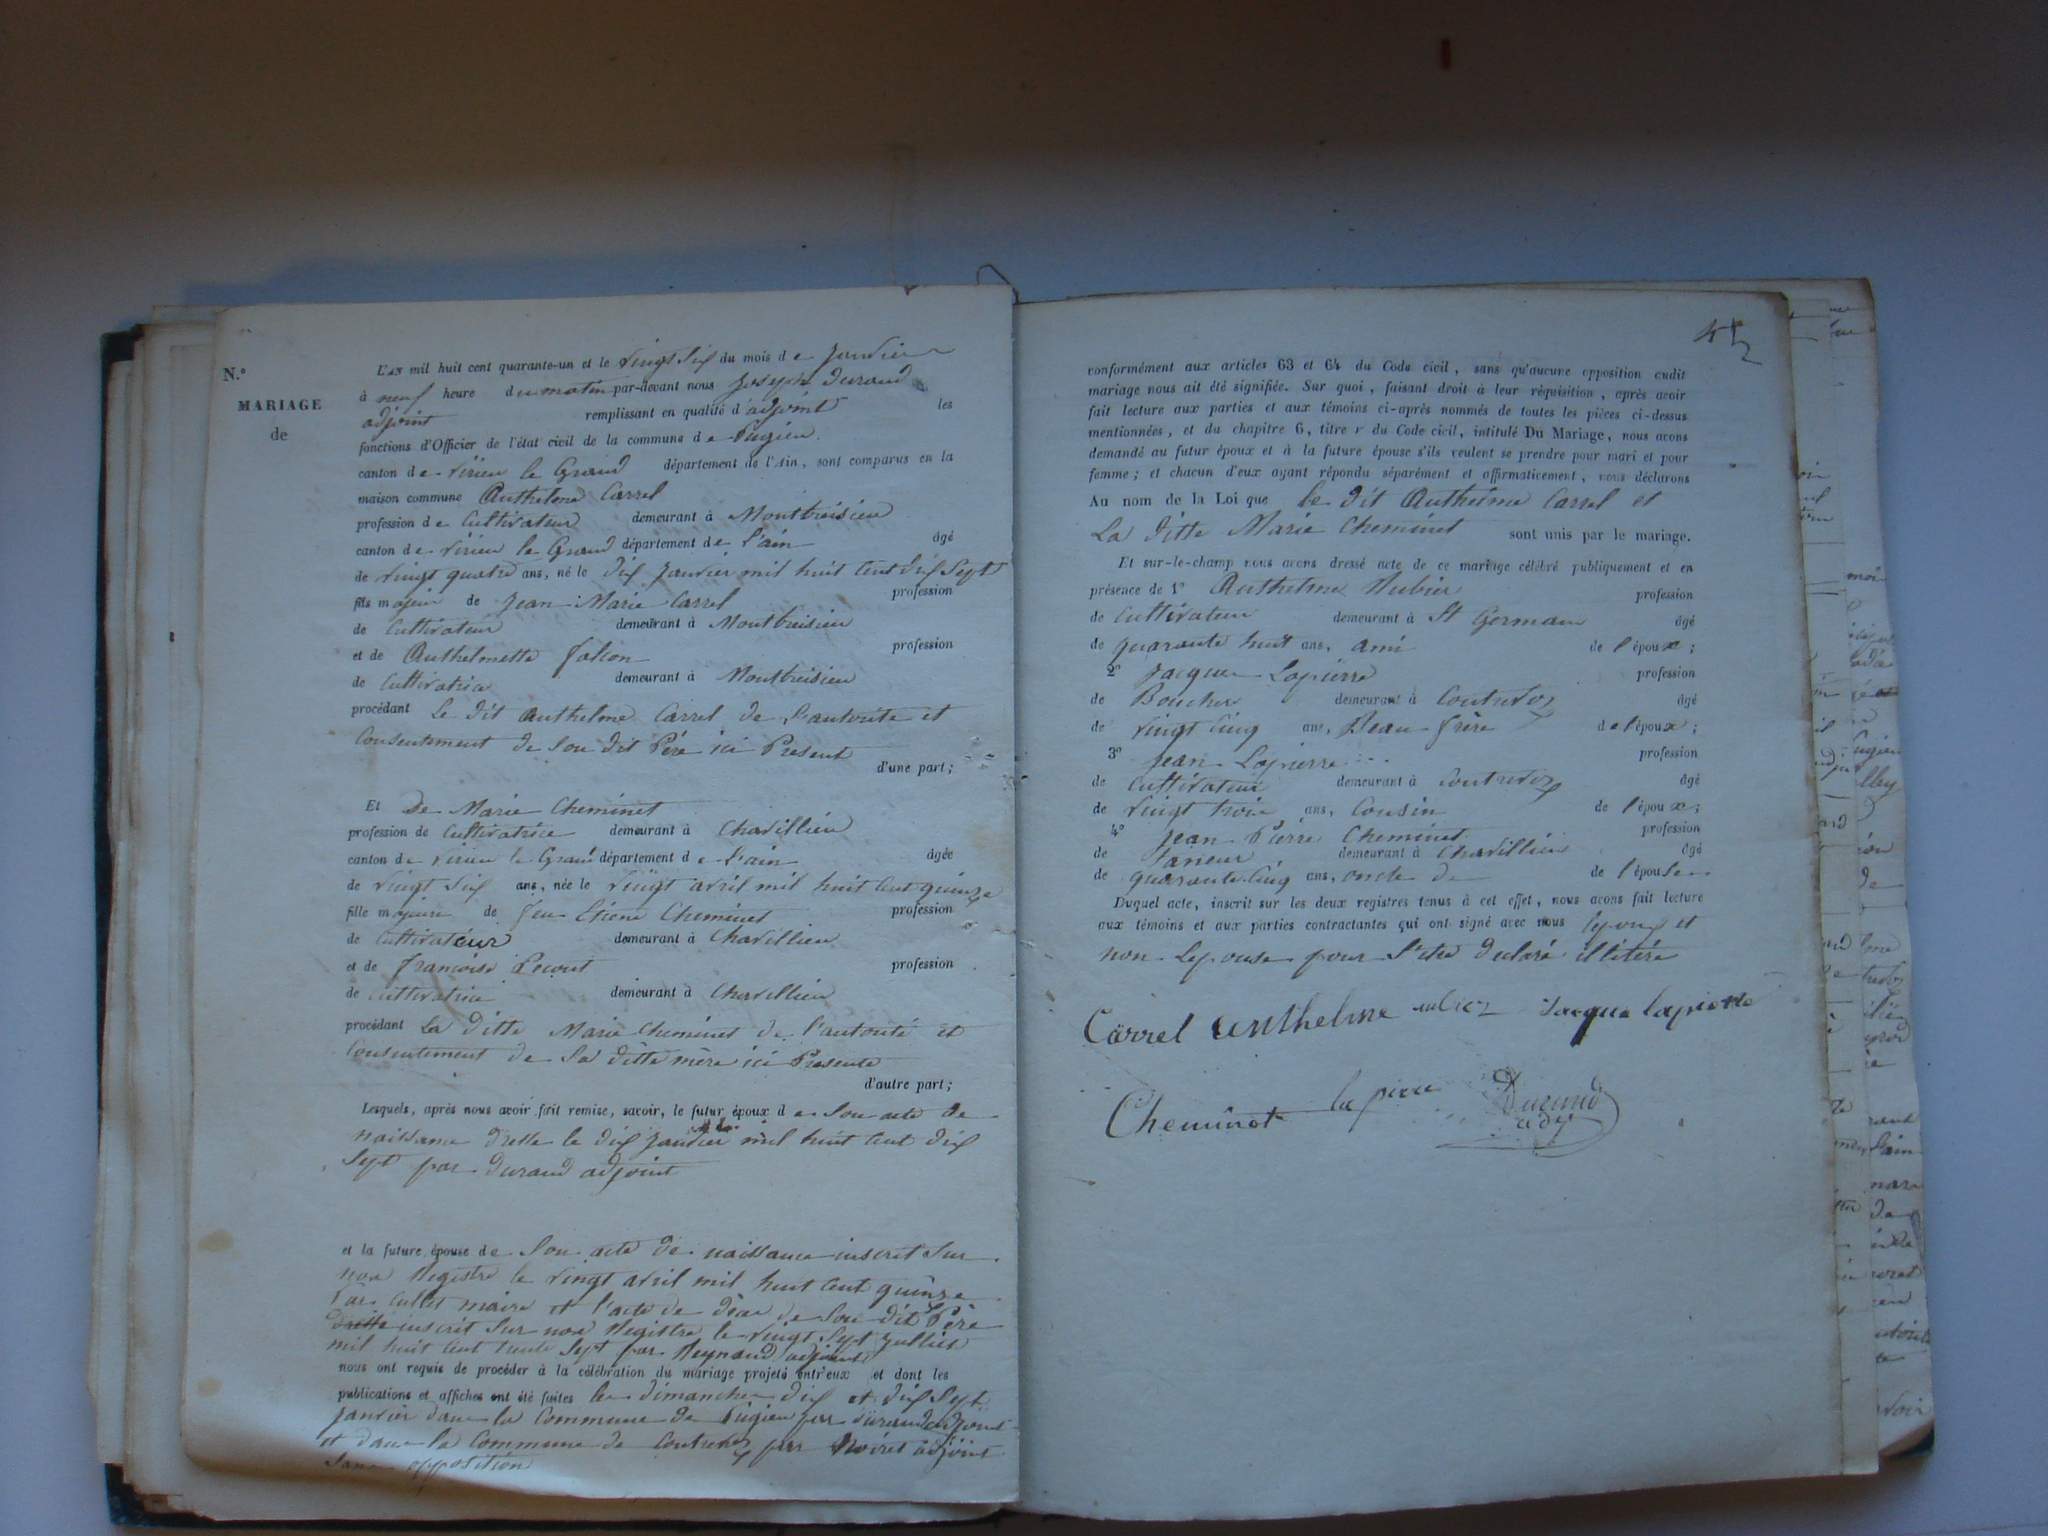 N.°
MARIAGE
de
L'AN mil huit cent quarante-un et le vingt six du mois de janvier
à neuf heure du matin par-devant nous joseph Durand
adjoint remplissant en qualité d'adjoint les
fonctions d'Officier de l'état civil de la commune de Pugieu
canton de Virieu le Grand département de l'Ain, sont comparus en la
maison commune Anthelme Carrel
profession de Cultivateur demeurant à Montbreisieu
canton de Virieu le Grand département de l'ain âgé
de vingt quatre ans, né le dix janvier mil huit cent dix sept
fils majeur de jean Marie Carrel profession
de Cultivateur demeurant à Montbreisieu
et de Anthelmette falcon profession
de Cultivatrice demeurant à Montbreisieu
procédant le dit Anthelme Carrel de l'autorite et
Consentement de Son dit Père ici Present
d'une part;
Et De Marie Cheminet
profession de Cultivatrice demeurant à Chavillieu
canton de Virieu le Grand département de l'ain âgée
de vingt six ans, née le vingt avril mil huit cent quinze
fille majeure de feu Etiene Cheminet profession
de Cultivateur demeurant à Chavillieu
et de françoise Pecout profession
de Cultivatrice demeurant à Chavillieu
procédant La ditte Marie Cheminet de l'autorité et
Consentement de Sa ditte mère ici Presente
d'autre part;
Lesquels, après nous avoir fait remise, savoir, le futur époux de Son acte de
naissance dresse le dix janvier mil huit cent dix
Sept par Durand adjoint
et la future épouse de Son acte de naissance inscrit Sur
nos Registre le vingt avril mil huit cent quinze
Par Cullet maire et l'acte de décé de Son dit Père
inscrit Sur nos Registre le vingt Sept jullier
mil huit cent trente Sept par Reynaud adjoint
nous ont requis de procéder à la célébration du mariage projeté entr'eux et dont les
publications et affiches ont été faites les dimanches dix et dix Sept
janvier dans la Commune de Pugieu par Durand adjoint
et dans la Commune de Contrevoz par Noiret adjoint
Sans opposition
45
conformément aux articles 63 et 64 du Code civil, sans qu'aucune opposition audit
mariage nous ait été signifiée. Sur quoi, faisant droit à leur réquisition, après avoir
fait lecture aux parties et aux témoins ci-après nommés de toutes les pièces ci-dessus
mentionnées, et du chapitre 6, titre v du Code civil, intitulé Du Mariage, nous avons
demandé au futur époux et à la future épouse s'ils veulent se prendre pour mari et pour
femme; et chacun d'eux ayant répondu séparément et affirmativement, nous déclarons
Au nom de la Loi que le dit Anthelme Carrel et
La ditte Marie Cheminet sont unis par le mariage.
Et sur-le-champ nous avons dressé acte de ce mariage célébré publiquement et en
présence de 1° Anthelme Nubier profession
de Cultivateur demeurant à St Germain âgé
de quarante huit ans, ami de l'époux;
2° jacques Lapierre profession
de Boucher demeurant à Contrevoz âgé
de vingt cinq ans, Beau frère de l'époux;
3° jean Lapierre profession
de Cultivateur demeurant à Contrevoz âgé
de vingt trois ans, Cousin de l'époux;
4° jean Pierre Cheminet profession
de Taneur demeurant à Chavillieu âgé
de quarante cinq ans, oncle de de l'épouse
Duquel acte, inscrit sur les deux registres tenus à cet effet, nous avons fait lecture
aux témoins et aux parties contractantes qui ont signé avec nous lepoux et
non Lepouse pour S'etre déclaré illitéré
Carrel Anthelme jacque lapierre
Cheminet lapierre Durand
adj